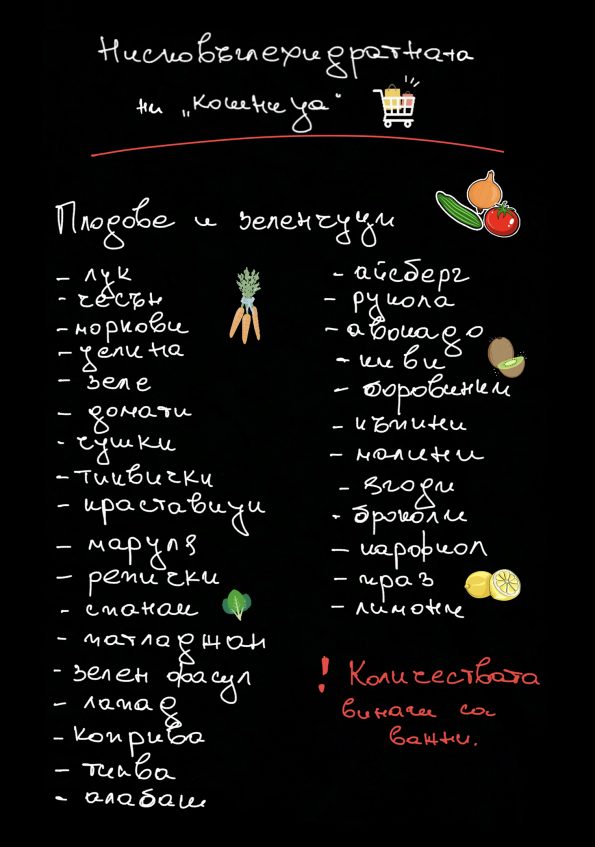 Нисковъглехидратната
ни „кошница“
Плодове и зеленчуци
- лук
- чесън
- моркови
- целина
- зеле
- домати
- чушки
- тиквички
- краставици
- маруля
- репички
- спанак
- патладжан
- зелен фасул
- лапад
- коприва
- тиква
- алабаш
- айсберг
- рукола
- авокадо
- киви
- боровинки
- къпини
- малини
- ягоди
- броколи
- карфиол
- праз
- лимони
! Количествата
винаги са
важни.